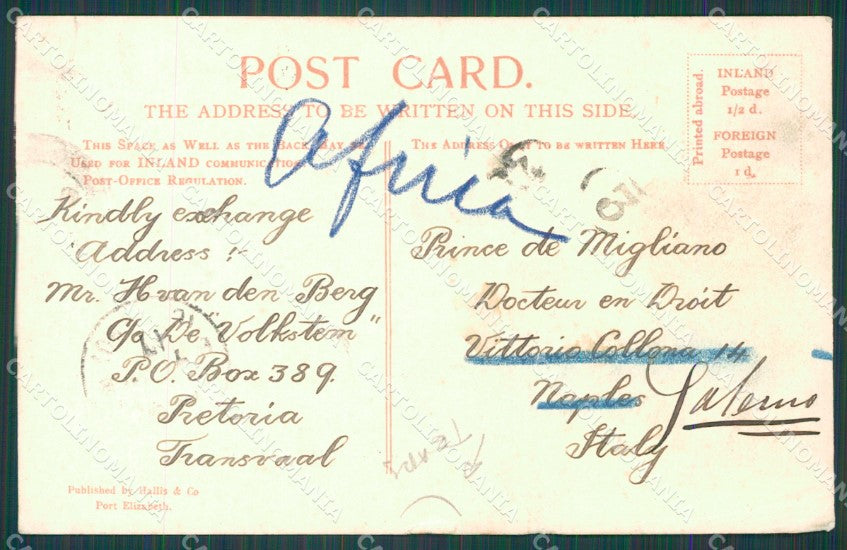 POST CARD.
THE ADDRESS TO BE WRITTEN ON THIS SIDE.
Africa
THIS SPACE AS WELL AS THE BACK MAY BE
USED FOR INLAND COMMUNICATION
POST-OFFICE REGULATION.
THE ADDRESS ONLY TO BE WRITTEN HERE
Printed abroad.
INLAND
Postage
1/2 d.
FOREIGN
Postage
1 d.
Kindly exchange
Address :
Mr. H van den Berg
c/o De Volkstem"
P.O. Box 389.
Pretoria
Transvaal
Prince de Migliano
Docteur en Droit
Vittorio Collona 14
Naples Salerno
Italy
Published by Hallis & Co
Port Elizabeth.
CARTOLINOMANIA